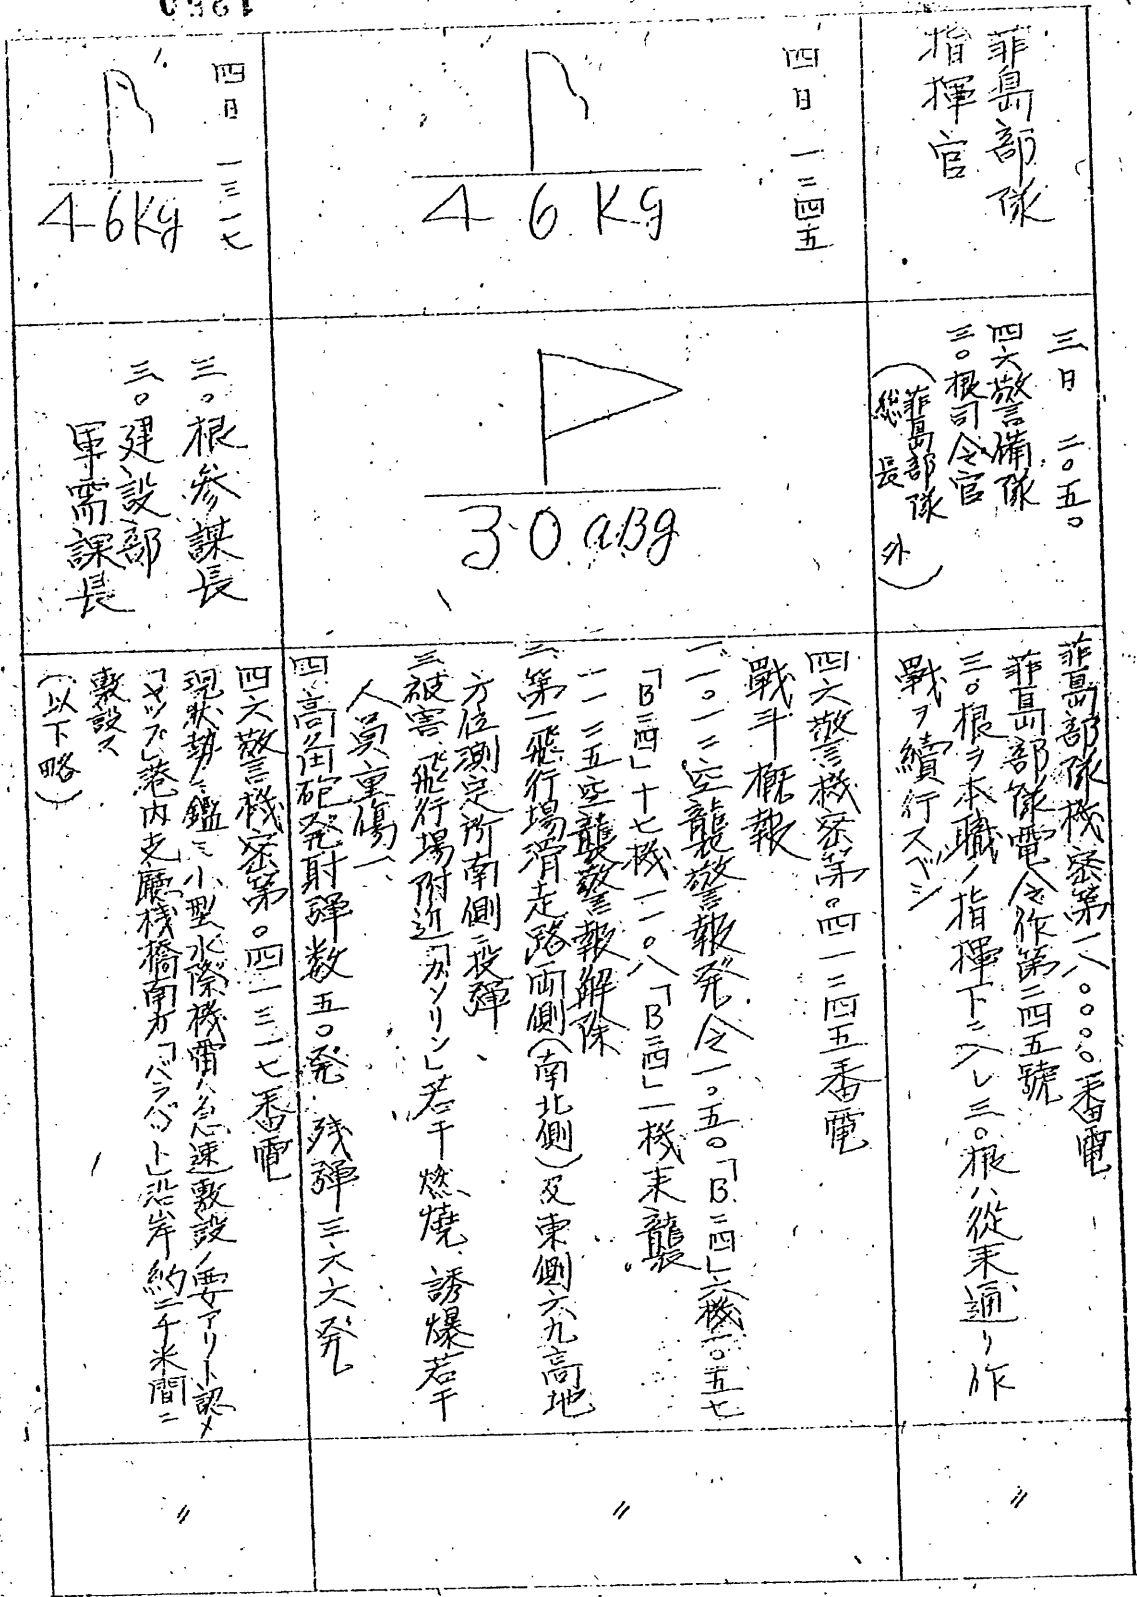 菲島部隊
指揮官
三日 二〇五〇
四六警備隊
三〇根司令官
(菲島部隊
総長 外)
菲島部隊機密第一八〇〇〇〇番電
菲島部隊電令作第二四五號
三〇根ヲ本職ノ指揮下ニ入レ三〇根ハ從来通リ作
戰ヲ續行スベシ
〃
四日 一二四五
46Kg
30aBg
四六警機密第〇四一二四五番電
戰斗概報
一、一〇一二空襲警報発令一〇五〇「B二四」六機一〇五七
「B二四」十七機一一〇八「B二四」一機来襲
一一二五空襲警報解除
二、第一飛行場滑走路両側(南北側)及東側六九高地
方位測定所南側ニ投弾
三、被害、飛行場附近「ガソリン」若干燃燒、誘爆若干
人員重傷一、
四、高角砲発射弾数五〇発 残弾三六六発
〃
四日 一三一七
46Kg
三〇根参謀長
三〇建設部
軍需課長
四六警機密第〇四一三一七番電
現状勢ニ鑑ミ小型水際機雷ハ急速敷設ノ要アリト認メ
「ヤップ」港内支廳桟橋南方「バラバット」沿岸約二千米間ニ
敷設ス
(以下略)
〃